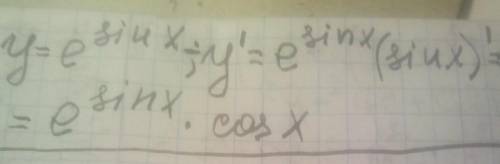 y = e^{sin x}; y' = e^{sin x} (sin x)' =
= e^{sin x} · cos x